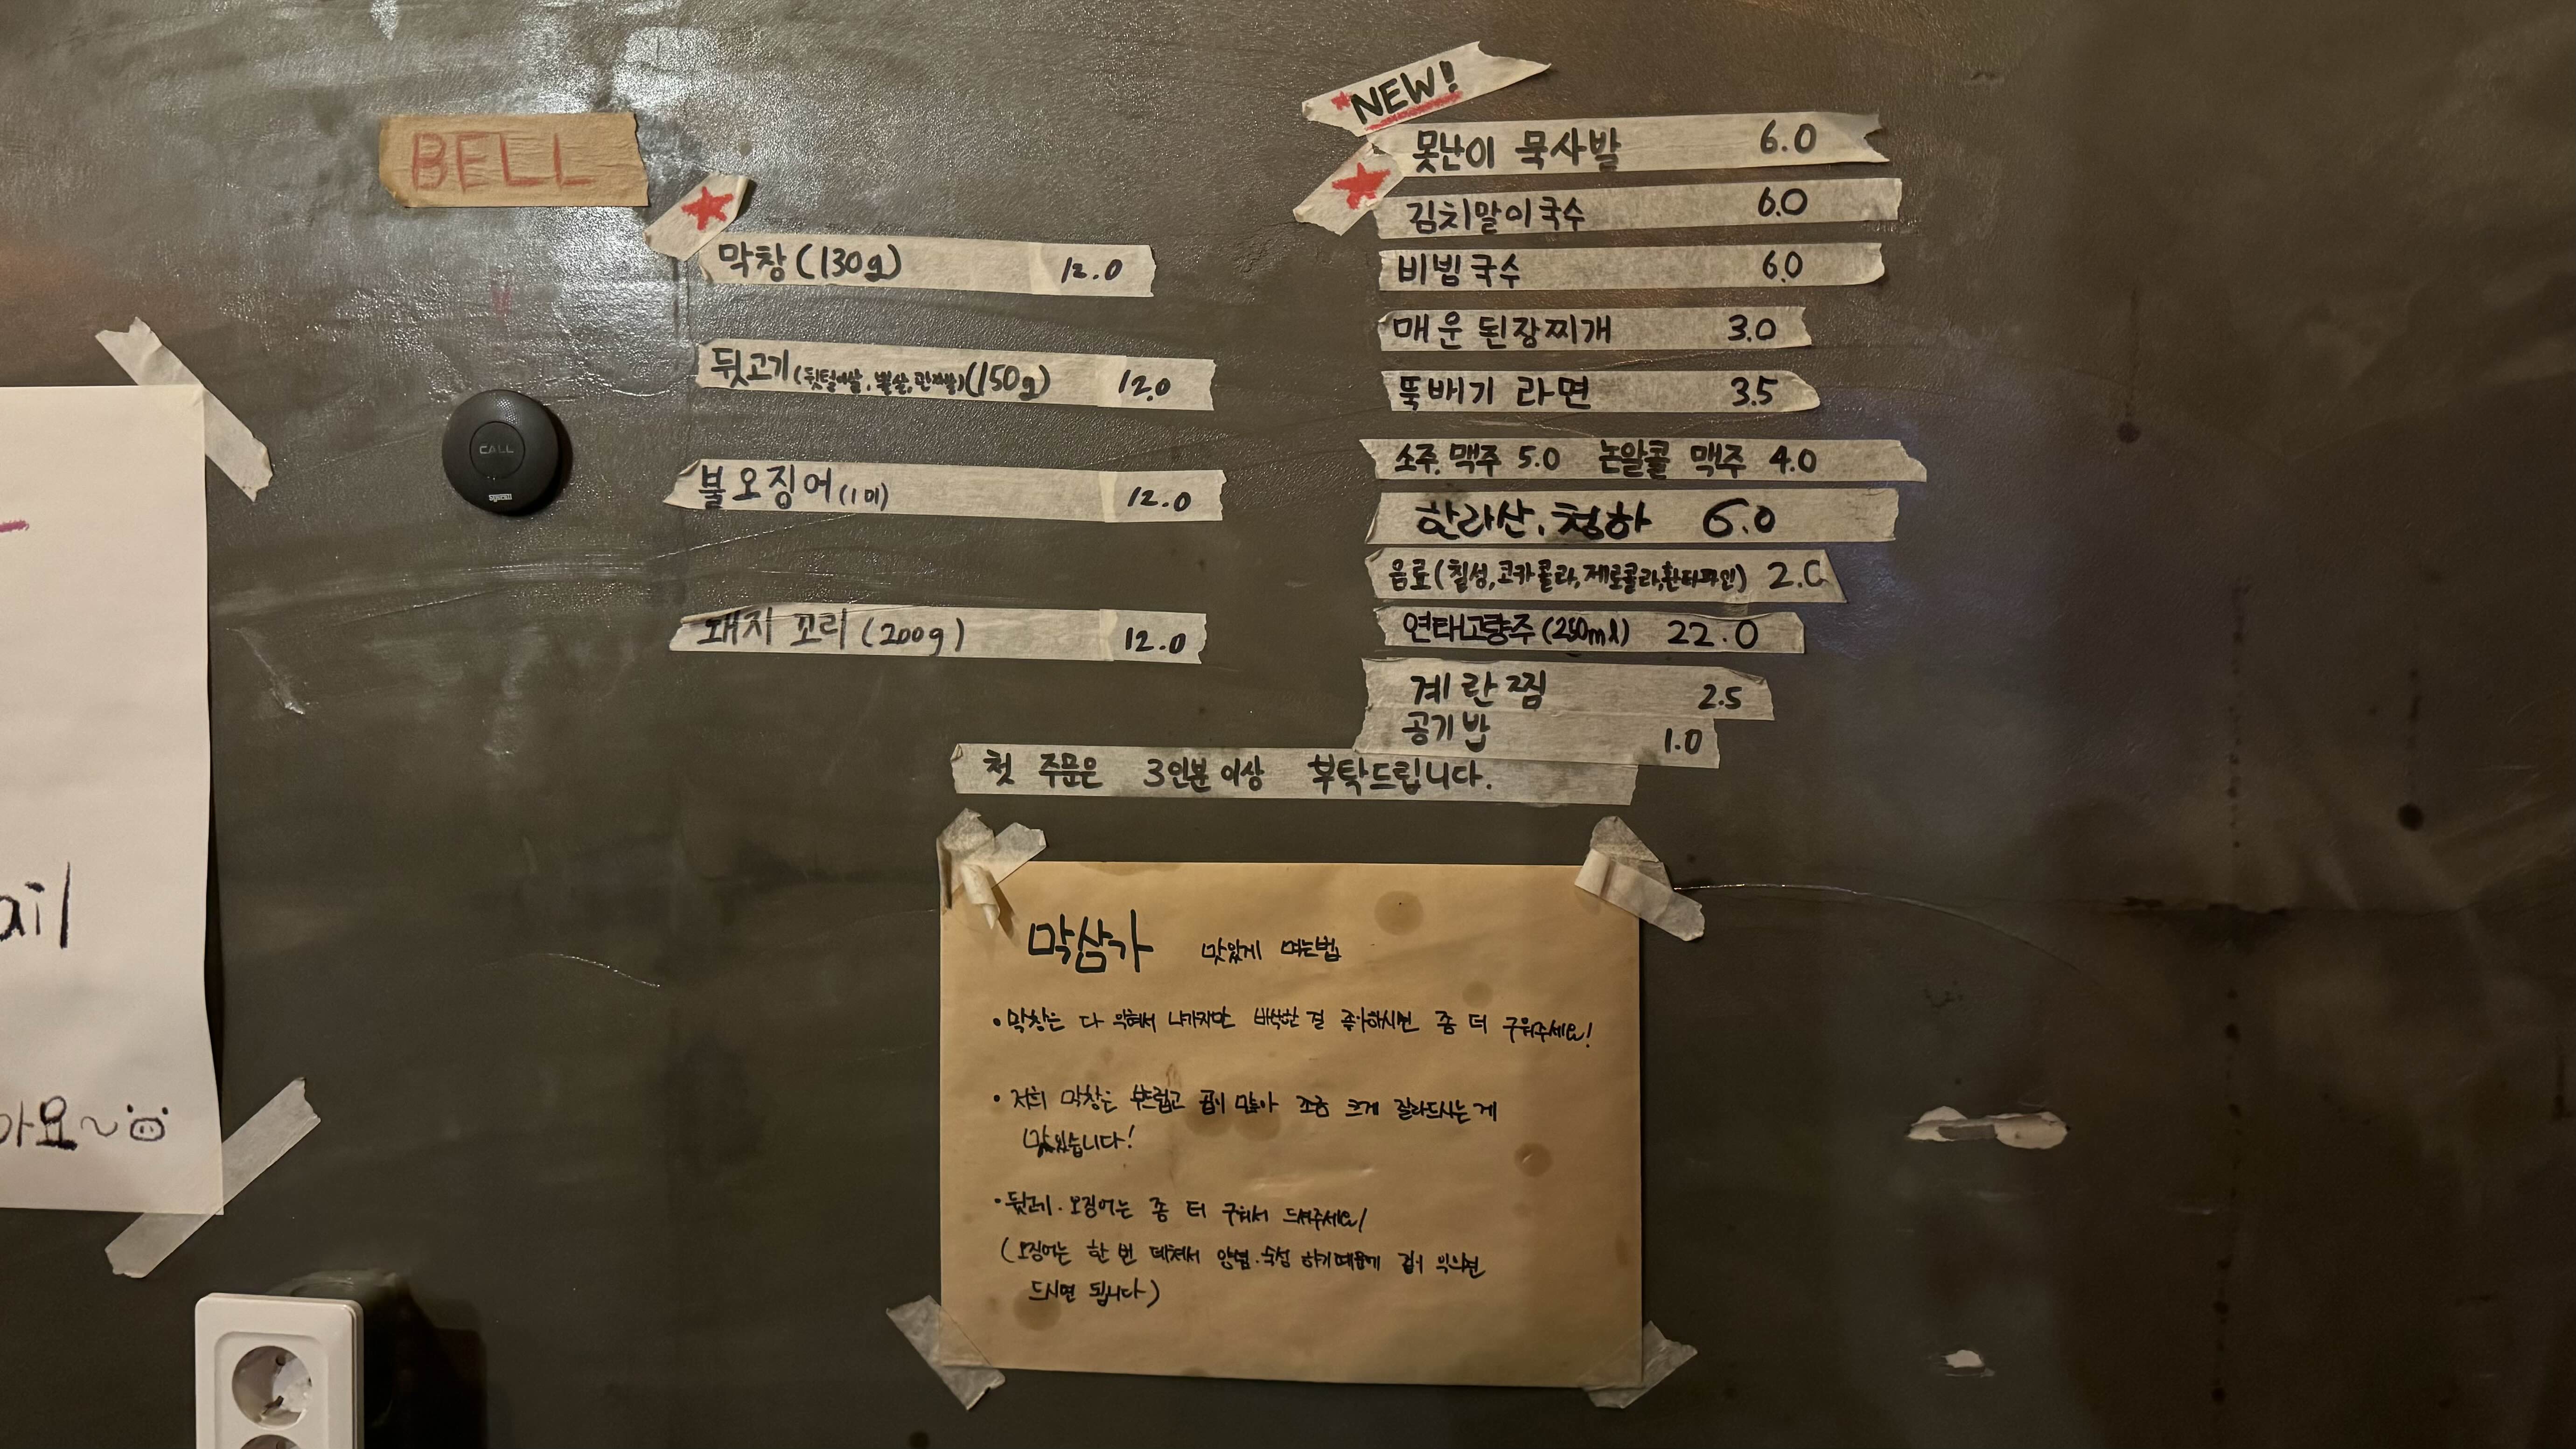 BELL
CALL
막창(130g) 12.0
뒷고기(뒷덜미살, 뽈살, 관자살)(150g) 12.0
불오징어(1미) 12.0
돼지 꼬리(200g) 12.0
*NEW!
못난이 묵사발 6.0
김치말이국수 6.0
비빔국수 6.0
매운 된장찌개 3.0
뚝배기 라면 3.5
소주, 맥주 5.0 논알콜 맥주 4.0
한라산, 청하 6.0
음료(칠성, 코카콜라, 제로콜라, 환타파인) 2.0
연태고량주(250ml) 22.0
계란찜 2.5
공기밥 1.0
첫 주문은 3인분 이상 부탁드립니다.
막삼가 맛있게 먹는법
• 막창은 다 익혀서 나가지만 바삭한 걸 좋아하시면 좀 더 구워주세요!
• 저희 막창은 부드럽고 곱이 많아 조금 크게 잘라드시는게
맛있습니다!
• 뒷고기. 오징어는 좀 더 구워서 드셔주세요!
(오징어는 한 번 데쳐서 양념.숙성 하기때문에 겉이 익으면
드시면 됩니다)
ail
아요~